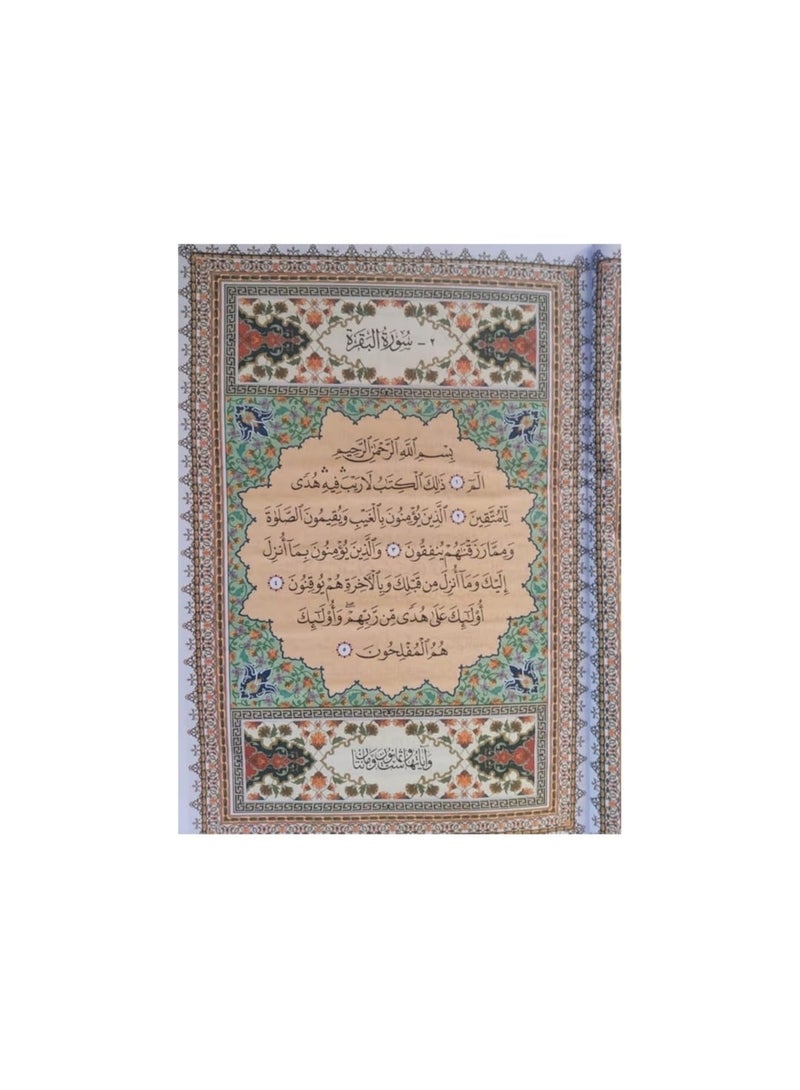 ٢ - سُورَةُ البَقَرَة
بِسْمِ ٱللَّهِ ٱلرَّحْمَٰنِ ٱلرَّحِيمِ
الٓمٓ ١ ذَٰلِكَ ٱلْكِتَٰبُ لَا رَيْبَ ۛ فِيهِ ۛ هُدًى
لِّلْمُتَّقِينَ ٢ ٱلَّذِينَ يُؤْمِنُونَ بِٱلْغَيْبِ وَيُقِيمُونَ ٱلصَّلَوٰةَ
وَمِمَّا رَزَقْنَٰهُمْ يُنفِقُونَ ٣ وَٱلَّذِينَ يُؤْمِنُونَ بِمَآ أُنزِلَ
إِلَيْكَ وَمَآ أُنزِلَ مِن قَبْلِكَ وَبِٱلْءَاخِرَةِ هُمْ يُوقِنُونَ ٤
أُو۟لَٰٓئِكَ عَلَىٰ هُدًى مِّن رَّبِّهِمْ ۖ وَأُو۟لَٰٓئِكَ
هُمُ ٱلْمُفْلِحُونَ ٥
وآياتها ست وثمانون ومائتان